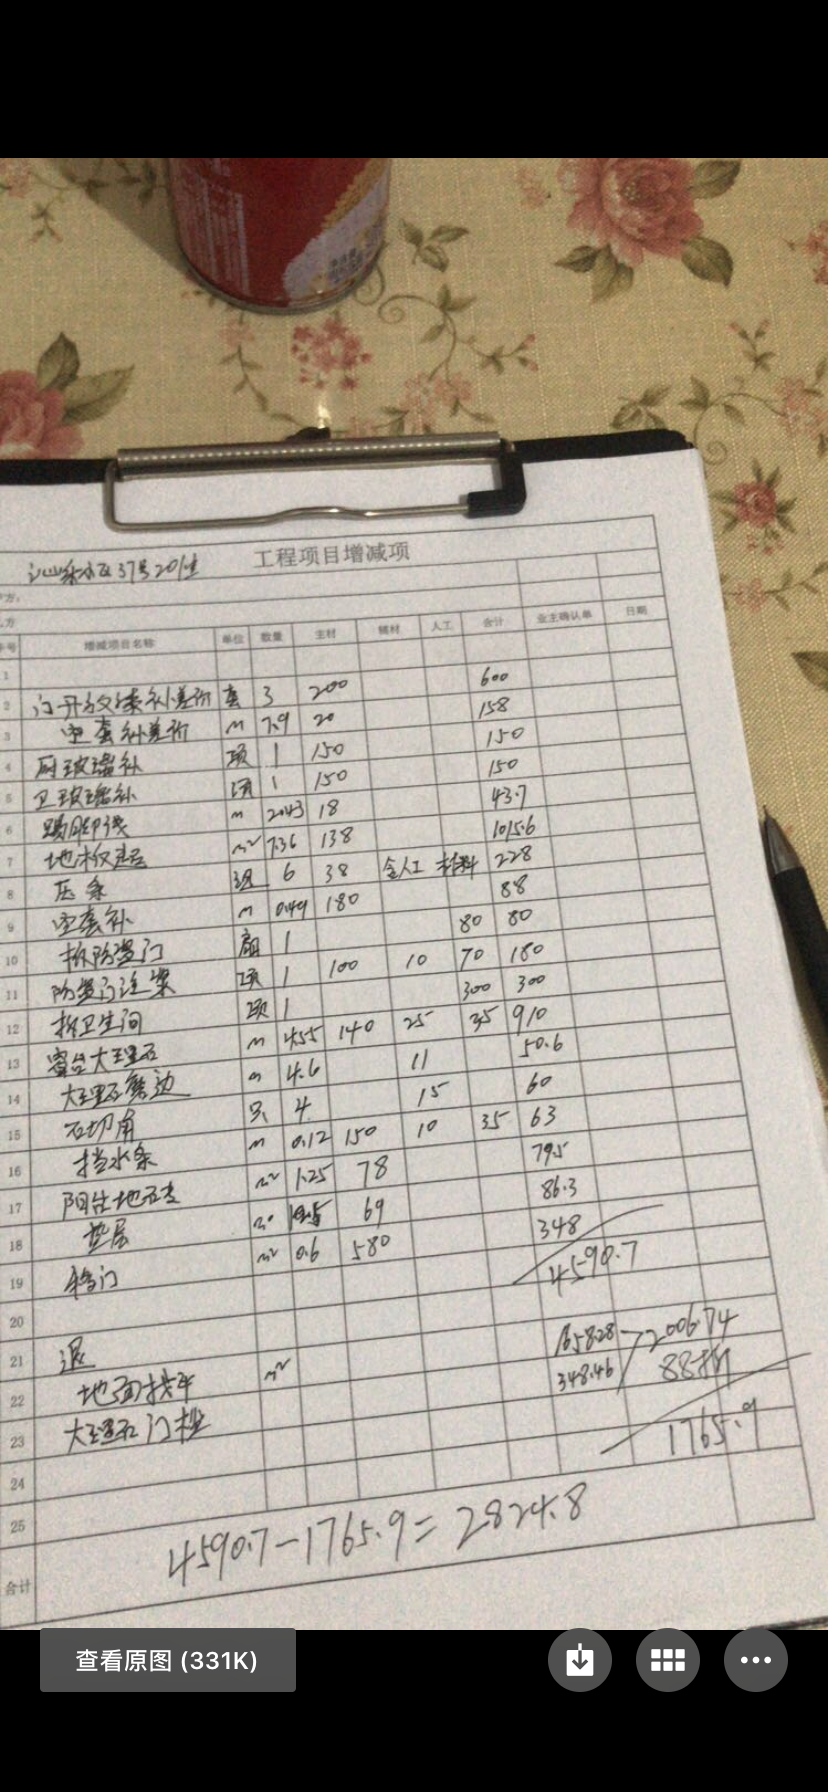 工程项目增减项
序号 增减项目名称 单位 数量 主材 辅材 人工 合计 业主确认单 日期
1
2 门开放漆补差价 套 3 200 600
3 垭套补差价 m 7.9 20 158
4 厨玻璃补 项 1 150 150
5 卫玻璃补 项 1 150 150
6 踢脚线 m 2.43 18 43.7
7 地板 m² 7.36 138 1015.6
8 压条 6 38 含人工 材料 228
9 垭套补 m 0.49 180 88
10 拆防盗门 扇 1 80 80
11 防盗门注浆 项 1 100 10 70 180
12 拆卫生间 项 1 300 300
13 窗台大理石 m 4.55 140 25 35 910
14 大理石磨边 m 4.6 11 50.6
15 石切角 只 4 15 60
16 挡水条 m 0.12 150 10 35 63
17 阳台地砖 m² 1.25 78 79.5
18 垫层 69 86.3
19 移门 m² 0.6 580 348
20 4590.7
21 退
22 地面找平 m² 1658.28 2006.74
23 大理石门槛 348.46 88折
24 1765.9
25
合计 4590.7-1765.9=2824.8
查看原图 (331K)